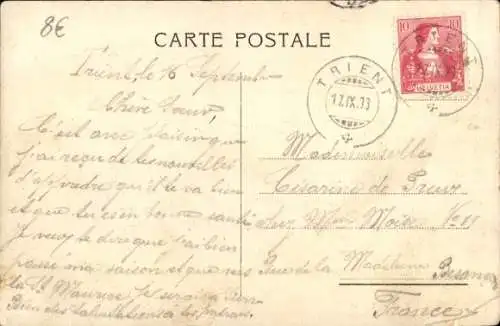 8€
CARTE POSTALE
10 10
HELVETIA
TRIENT
17.IX.33
TRIENT
Trient, le 16 Septembre
Chère Soeur,
C'est avec plaisir que
j'ai reçu de tes nouvelles
d'apprendre qu'il te va bien
et que tu es en bonne santé
Je veux te dire que j'ai bien
passé ma saison et que
la St Maurice je serai
Bien des salutations
Mademoiselle
Césarine de Preux
Rue de la Madeleine Besançon
France